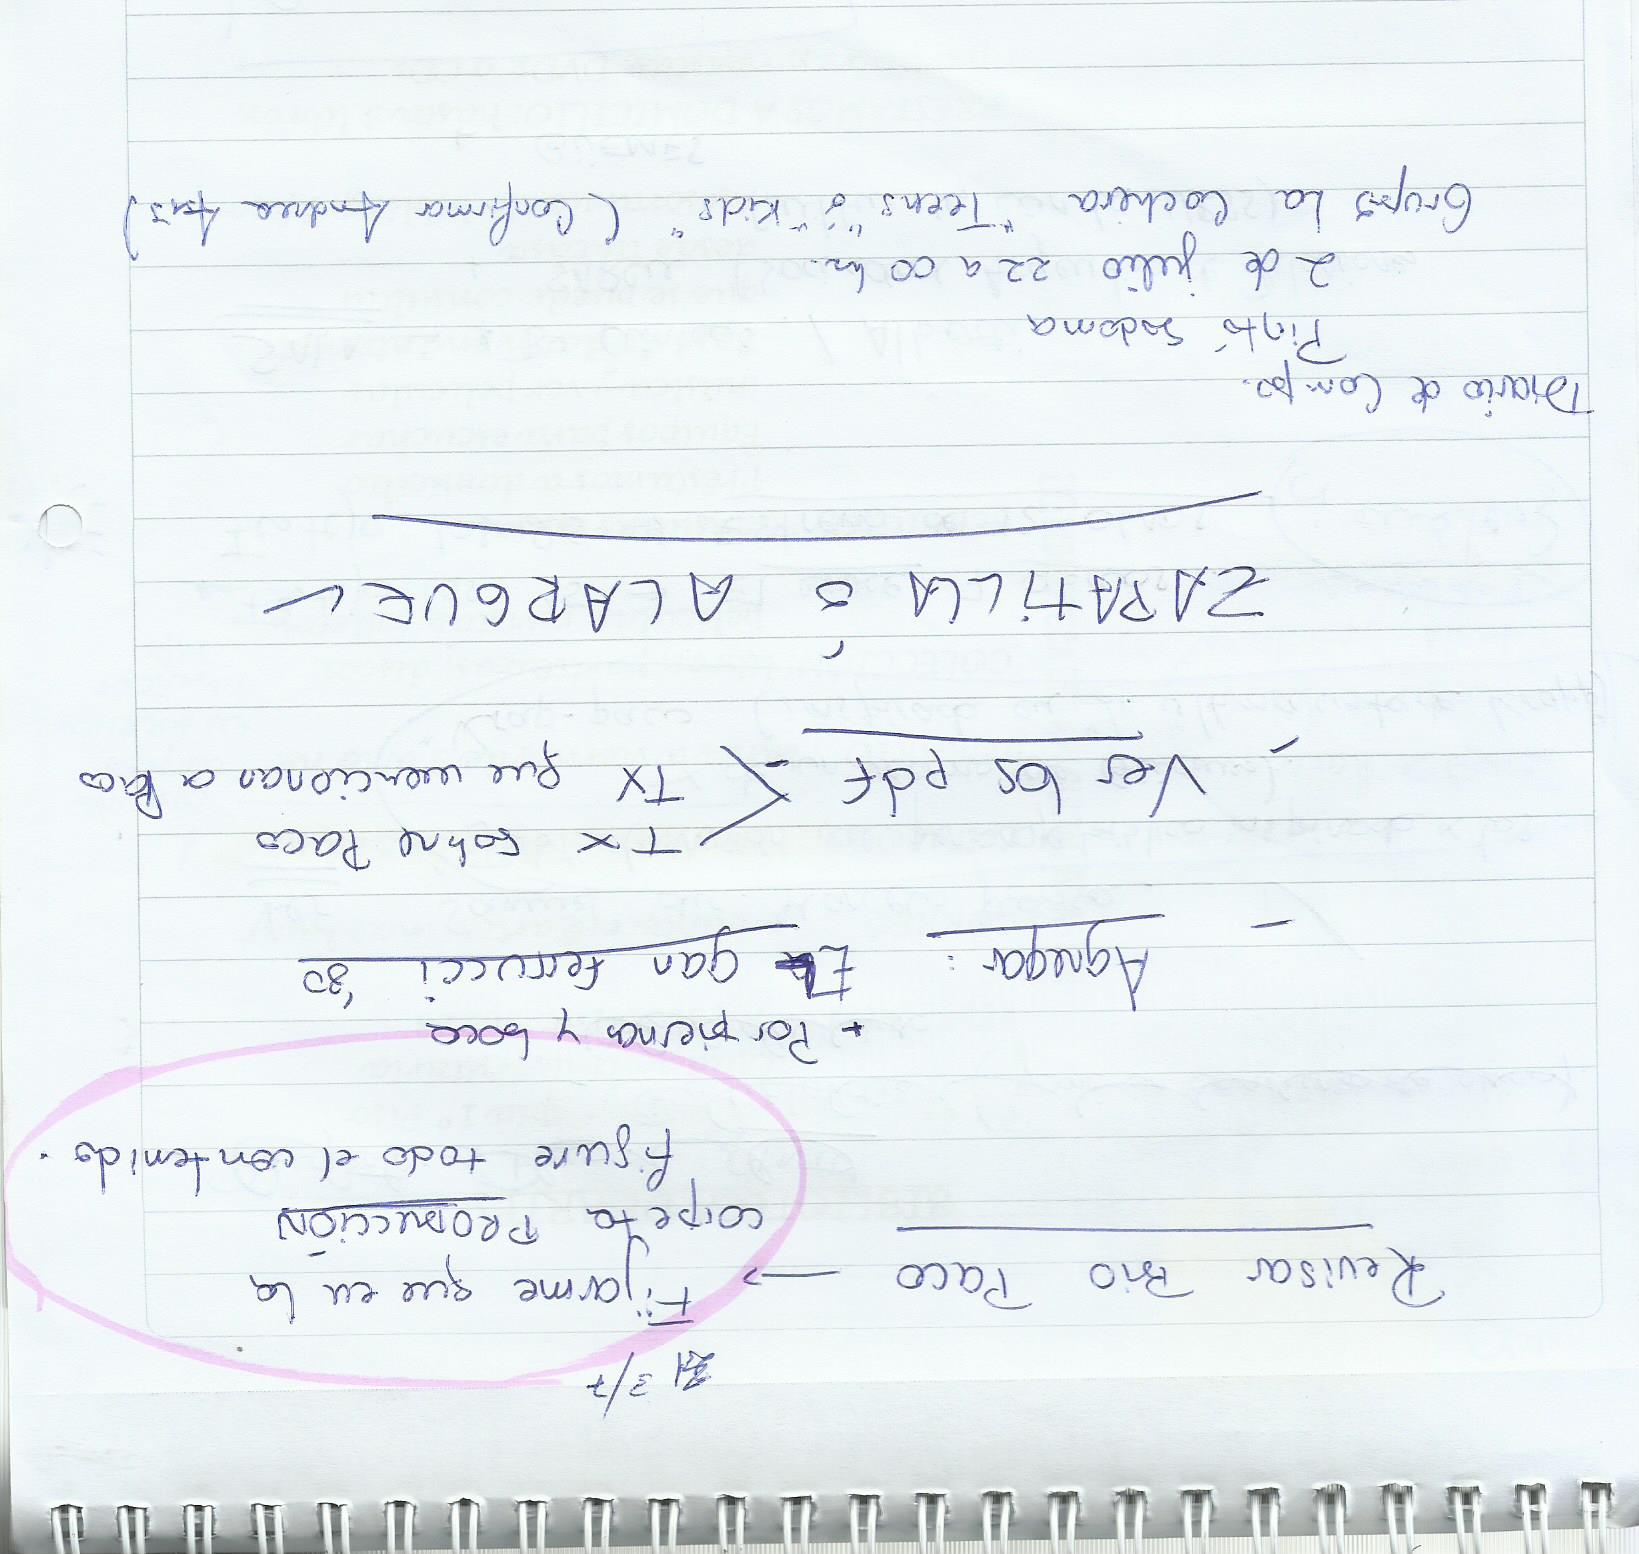 3/7
Revisar Bio Paco → Fijarme que en la
carpeta PRODUCCIÓN
figure todo el contenido.
+ Por piernas y boca
- Agregar: gan ferrucci '80
TX sobre Paco
- Ver los pdf < TX que mencionan a Paco
ZAPATILLA ó ALARGUE
Diario de Campo.
Pintó Sodoma
2 de julio 22 a 00 hs.
Grupos La Cochera "Teens" ó "Kids" (Confirmar Andrea